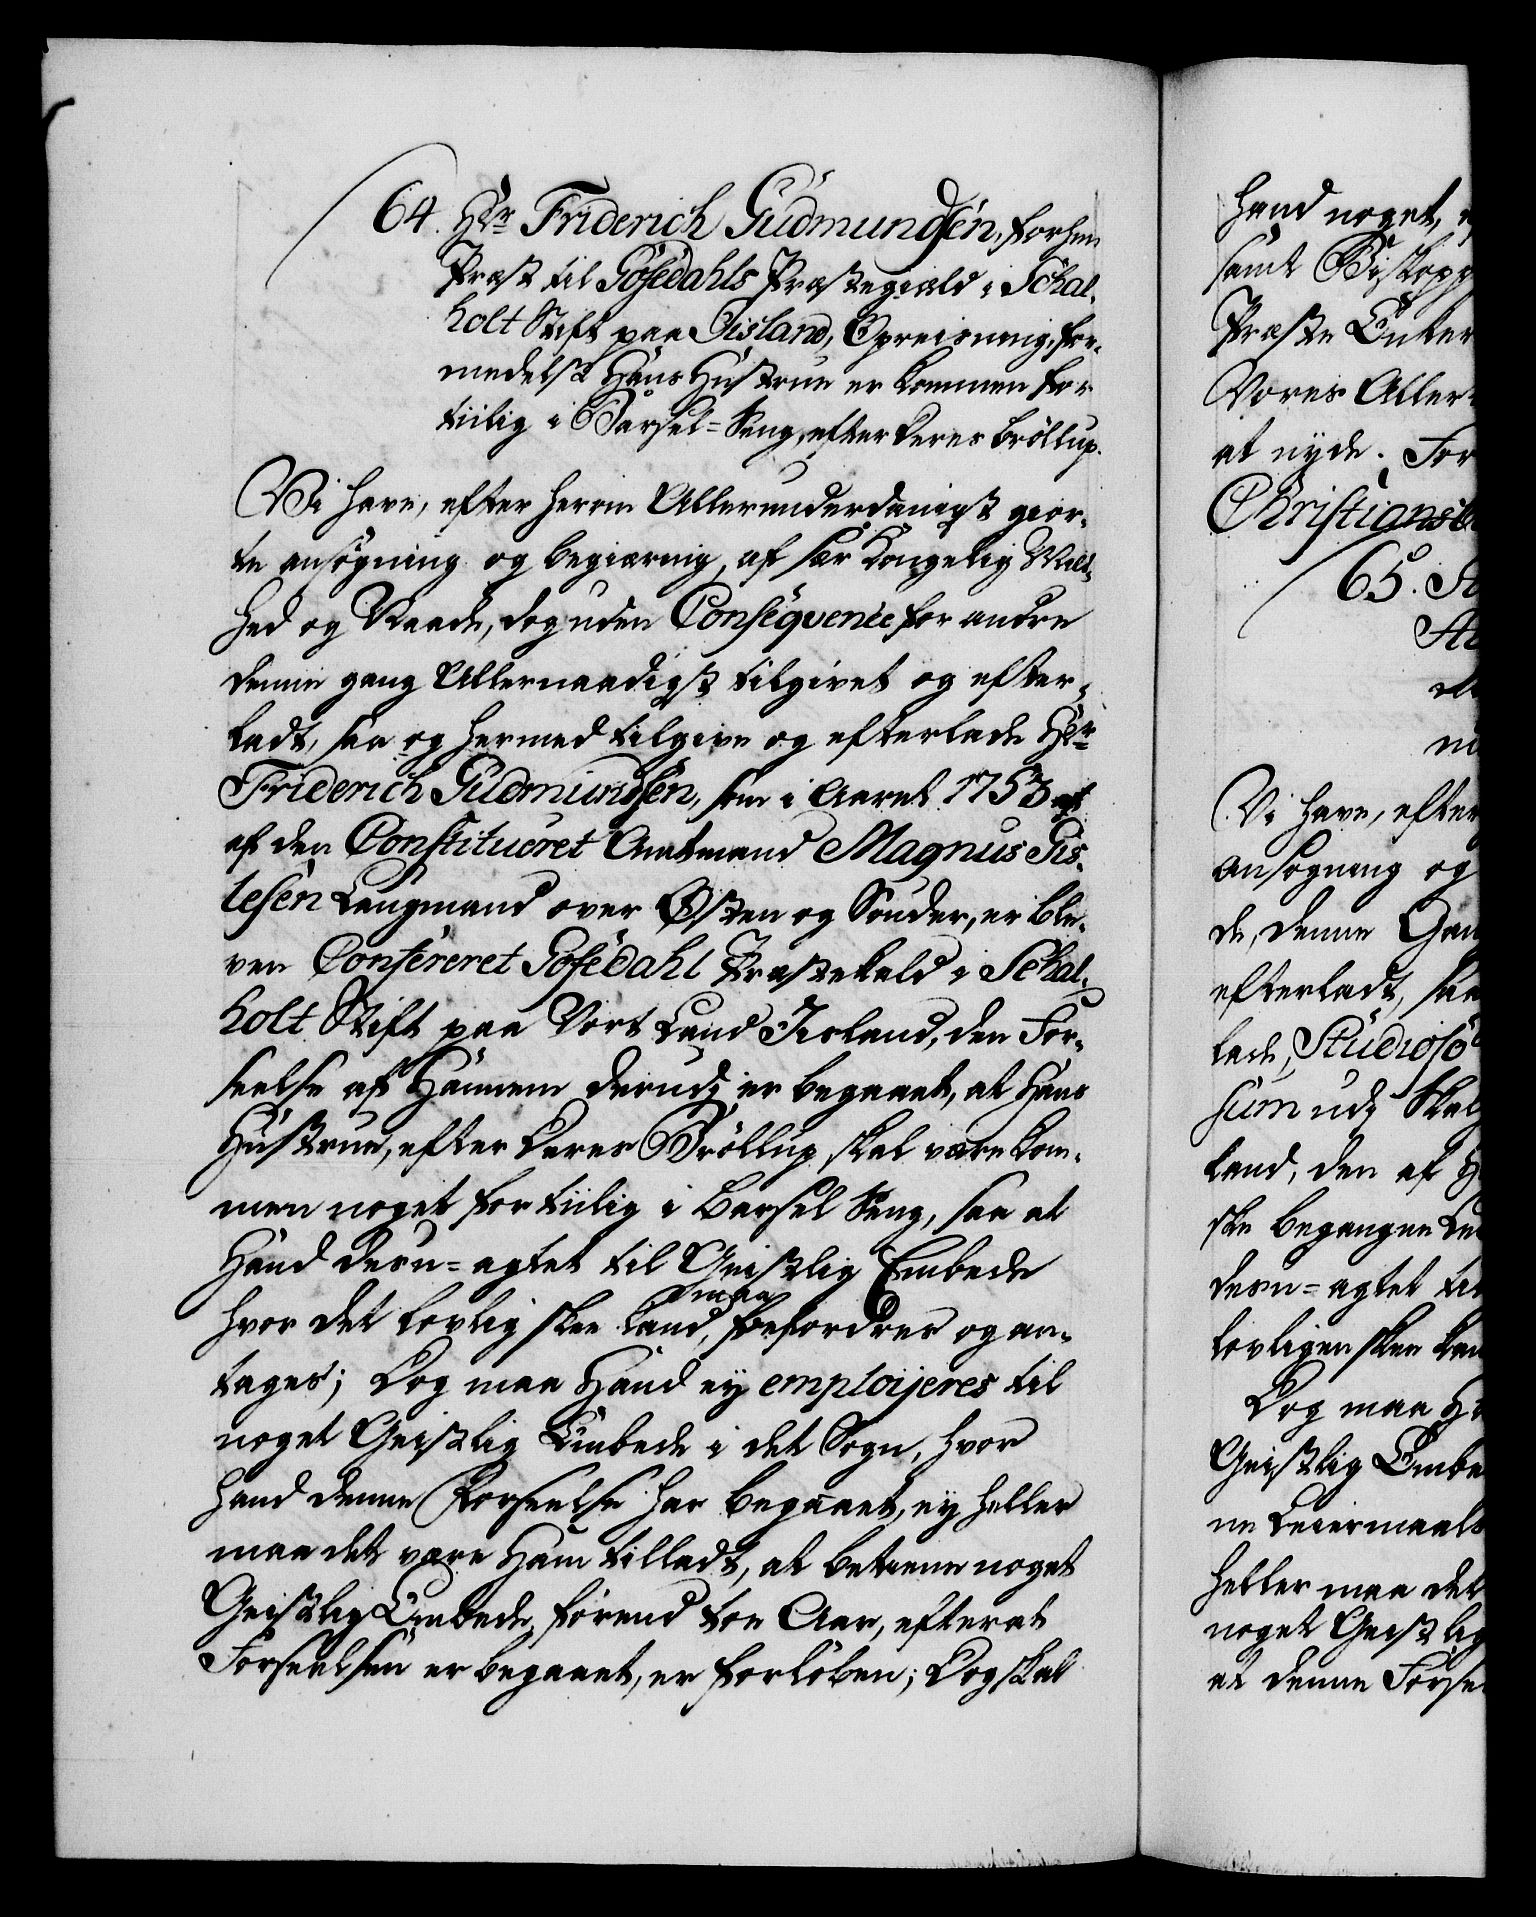 64. Hr. Friderich Gudmundsen, forhen
Præst til Gofedahls Præstegield i Schal-
holt Stift paa Iisland, Opreisning, for-
medelst Hans Hustrue er kommen for
tiilig i Barsel-Seng, efter deres bröllup.
Vi have, efter herom Allerunderdanigst gior-
te ansøgning og begiæring, af sær Kongelig Mild-
hed og Naade, dog uden Conseqvence for andre
denne gang Allernaadigst tilgivet og efter-
ladt, saa og hermed tilgive og efterlade Hr.
Friderich Gudmundsen, som i Aaret 1753
af den Constitueret Amtmand Magnus Gis-
lesen Laugmand over Østen og Sønder, er ble-
ven Confereret Gofedahl Præstekald i Schal-
holt Stift paa Vort Land Iisland, den For-
seelse af Hannem derudj er begaaet, at Hans
Hustrue, efter deres Bröllup, skal være kom-
men noget for tiilig i Barsel Seng, saa at
Hand desu-agtet til Geistlig Embede
hvor det lovlig skee kand, maa befordres og an-
tages; Dog maa Hand ey emploijeres til
noget Geistlig Embede i det Sogn, hvor
hand denne Forseelse har begaaet, ey heller
maa det være Ham tilladt, at betiene noget
Geistlig Embede, førend toe Aar, efter at
Forseelsen er begaaet, er forløben; Dog skal
hand noget,
samt Biskopp
Præste Enker
Vores Aller
at nyde. For
Christiansb
65. St
Vi have, efter
ansøgning og
de, denne Gan
efterladt, saa
lade, Studioso
sum udj Skal
land, den af H
ske begangne Le
desu-agtet til
lovligen skee kan
Dog maa Ha
Geistlig Embe
ne Leiermaals
heller maa det
noget Geistlig
at denne Forse